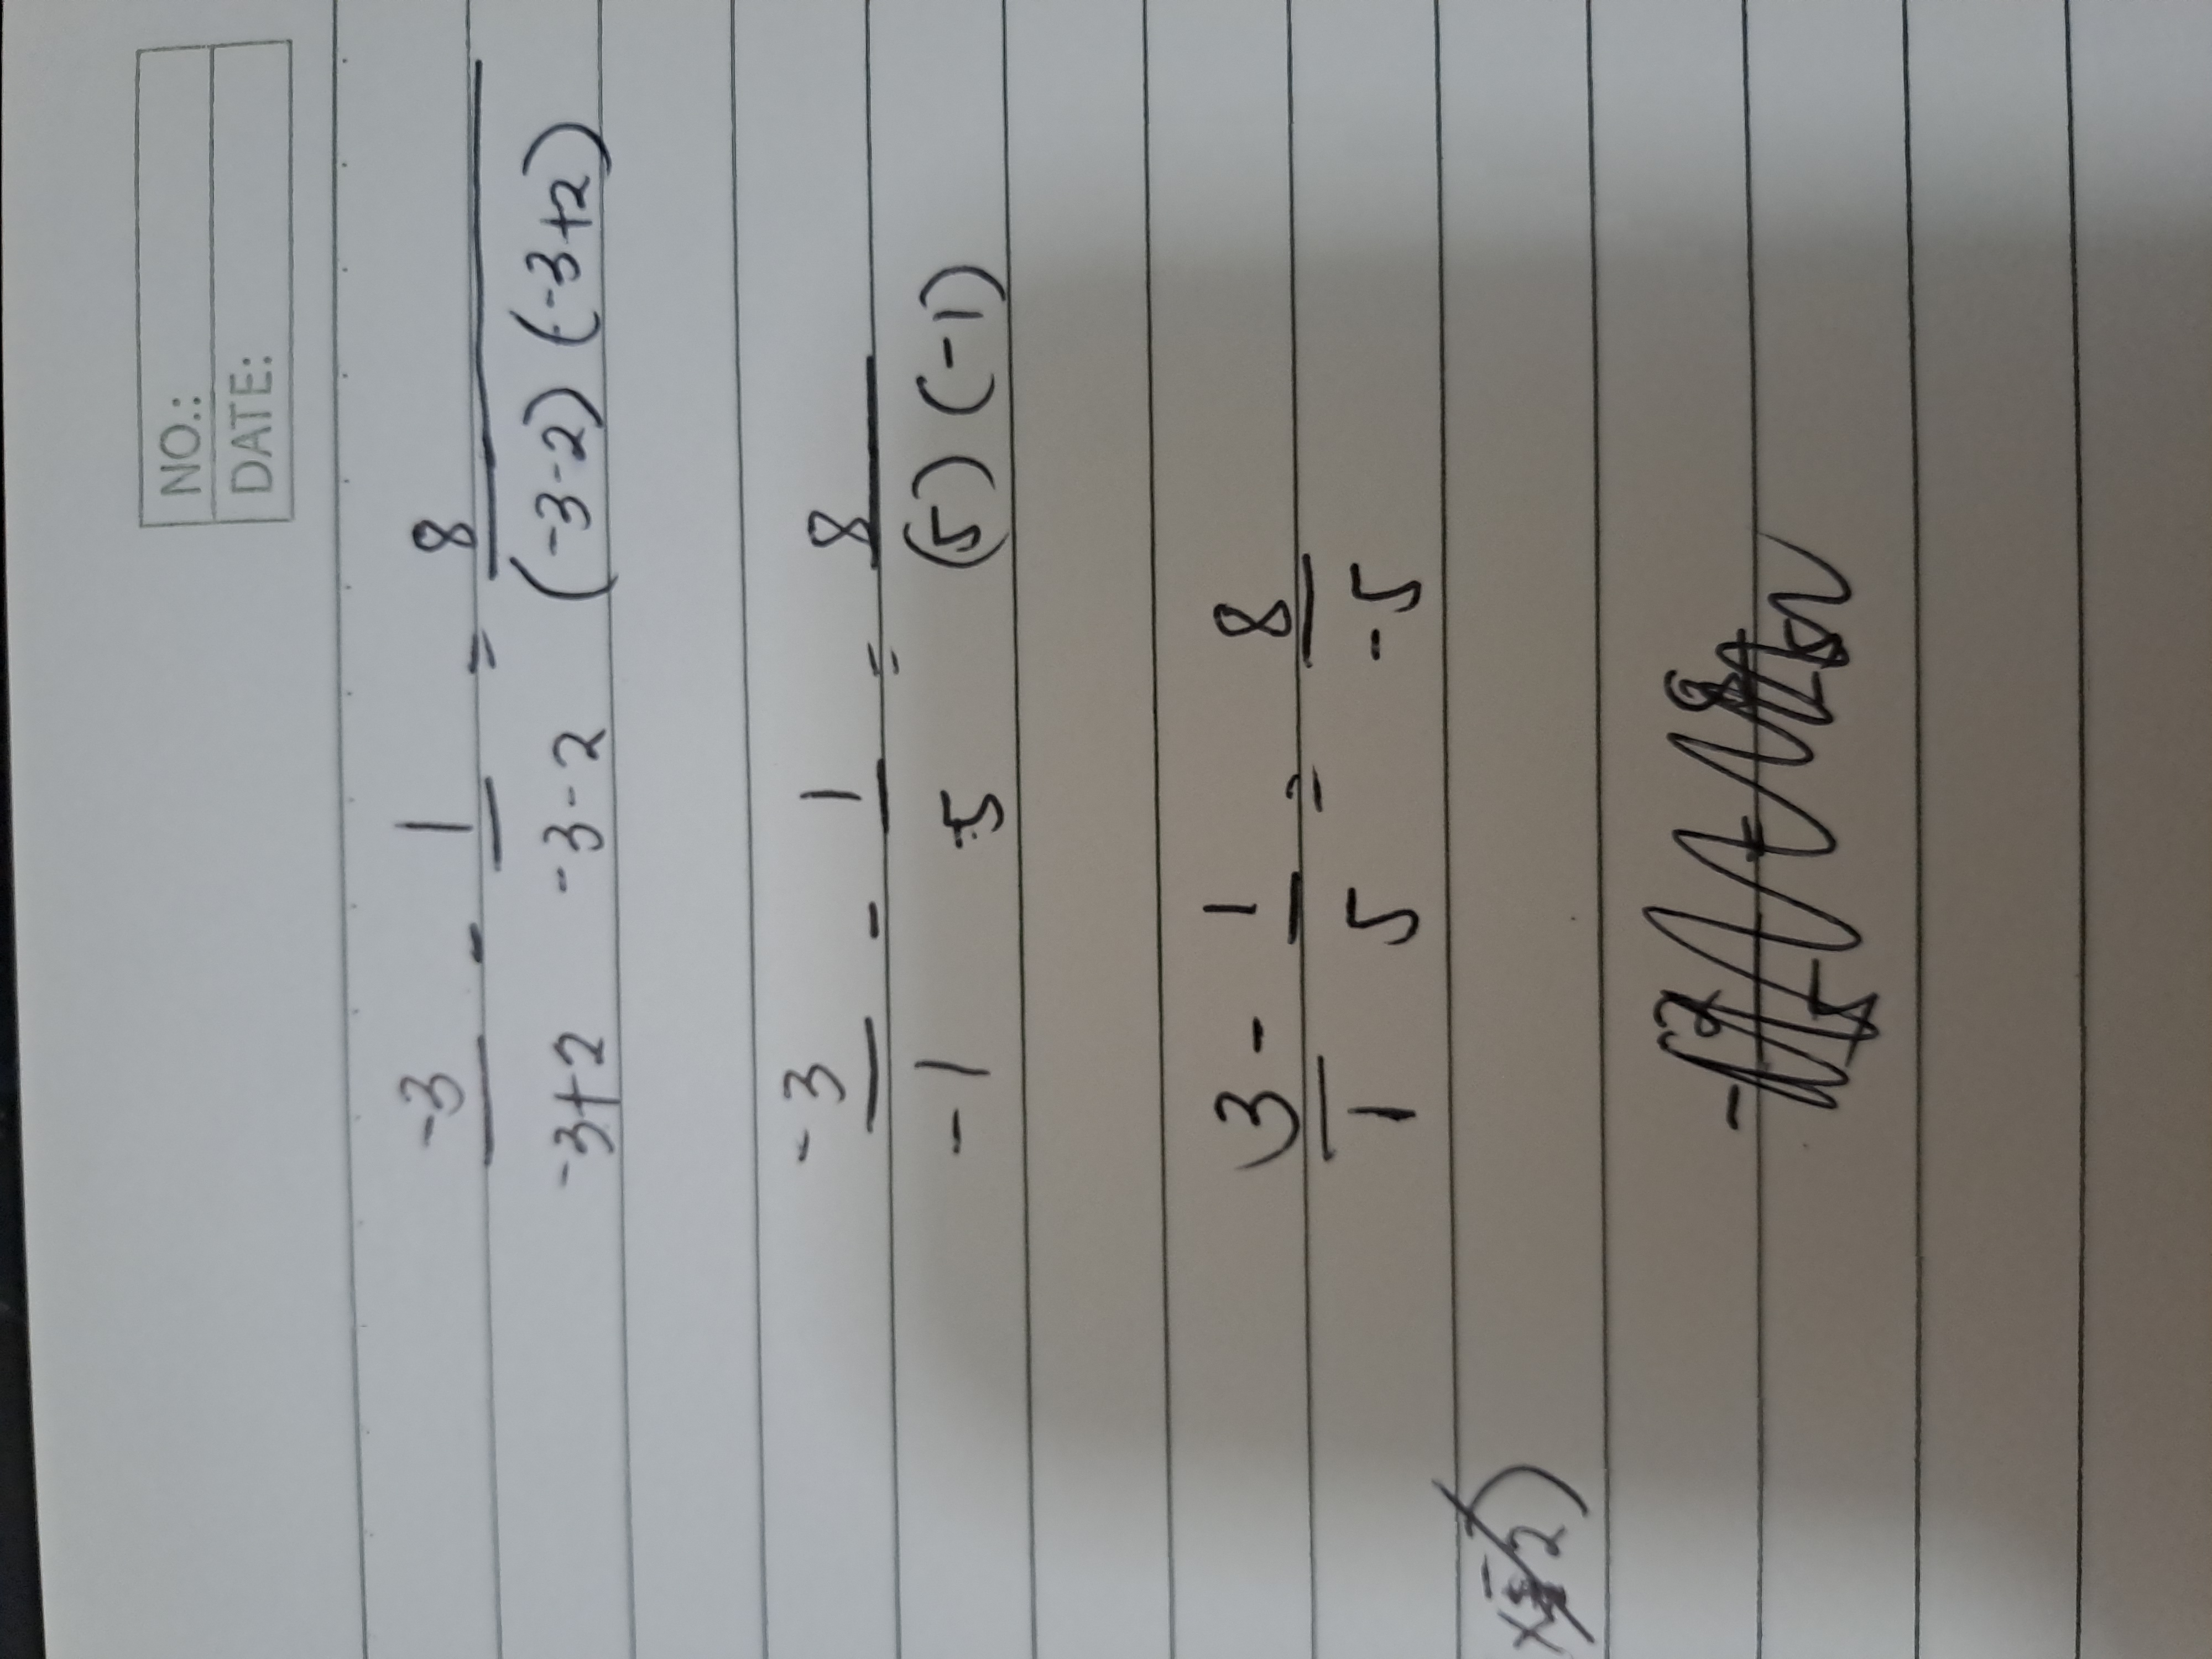 NO.:
DATE:
-3/-3+2 - 1/-3-2 = 8/(-3-2)(-3+2)
-3/-1 - 1/5 = 8/(5)(-1)
3/1 - 1/5 = 8/-5